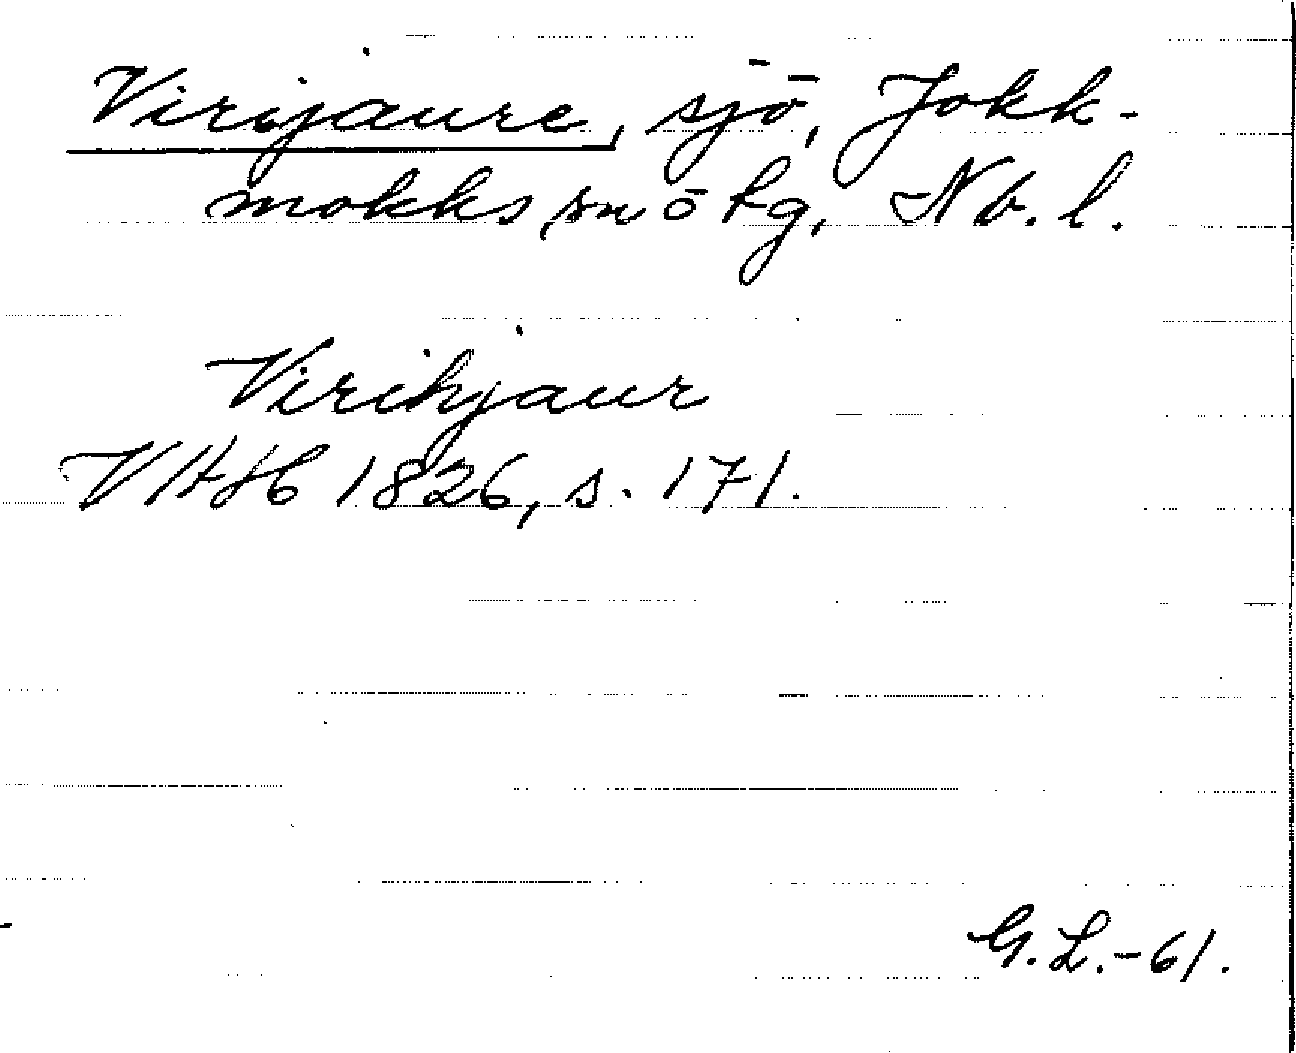 Virijaure, sjö, Jokk-
mokks sn ö tg, Nb. l.
Virihjaur
VAH 1826, s. 171.
G.L.-61.